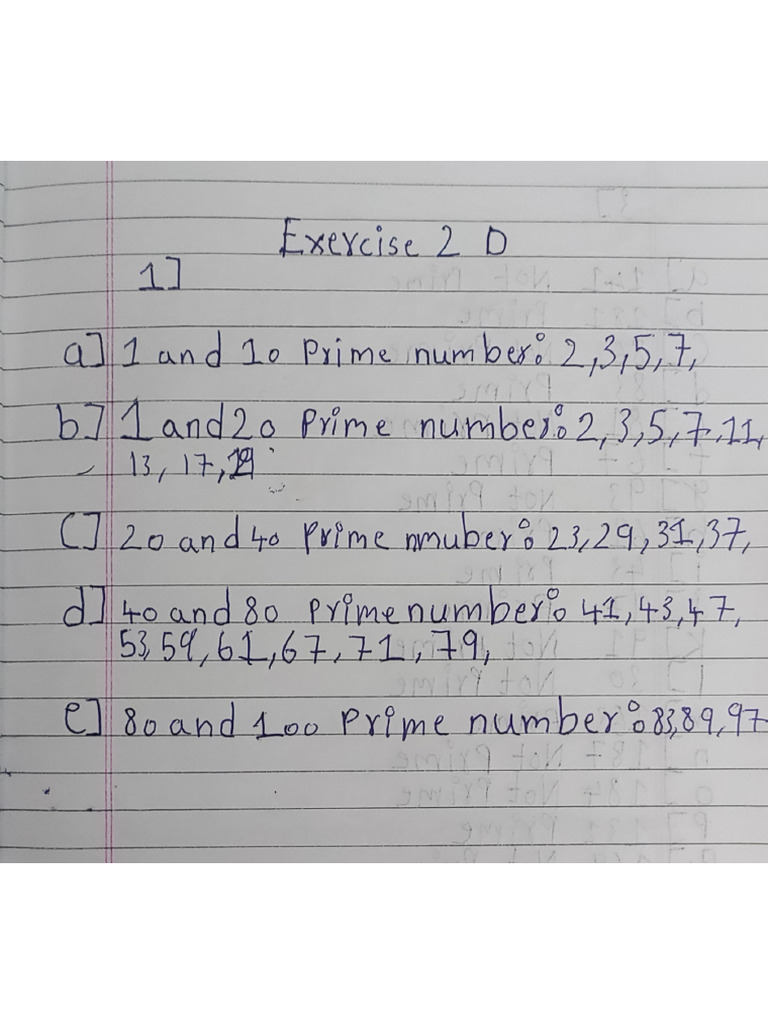 Exercise 2 D
1]
a] 1 and 10 Prime number: 2,3,5,7,
b] 1 and 20 Prime number: 2,3,5,7,11,
13, 17, 19
C] 20 and 40 Prime nmuber: 23,29,31,37,
d] 40 and 80 Prime number: 41,43,47,
53,59,61,67,71,79,
e] 80 and 100 Prime number: 83,89,97